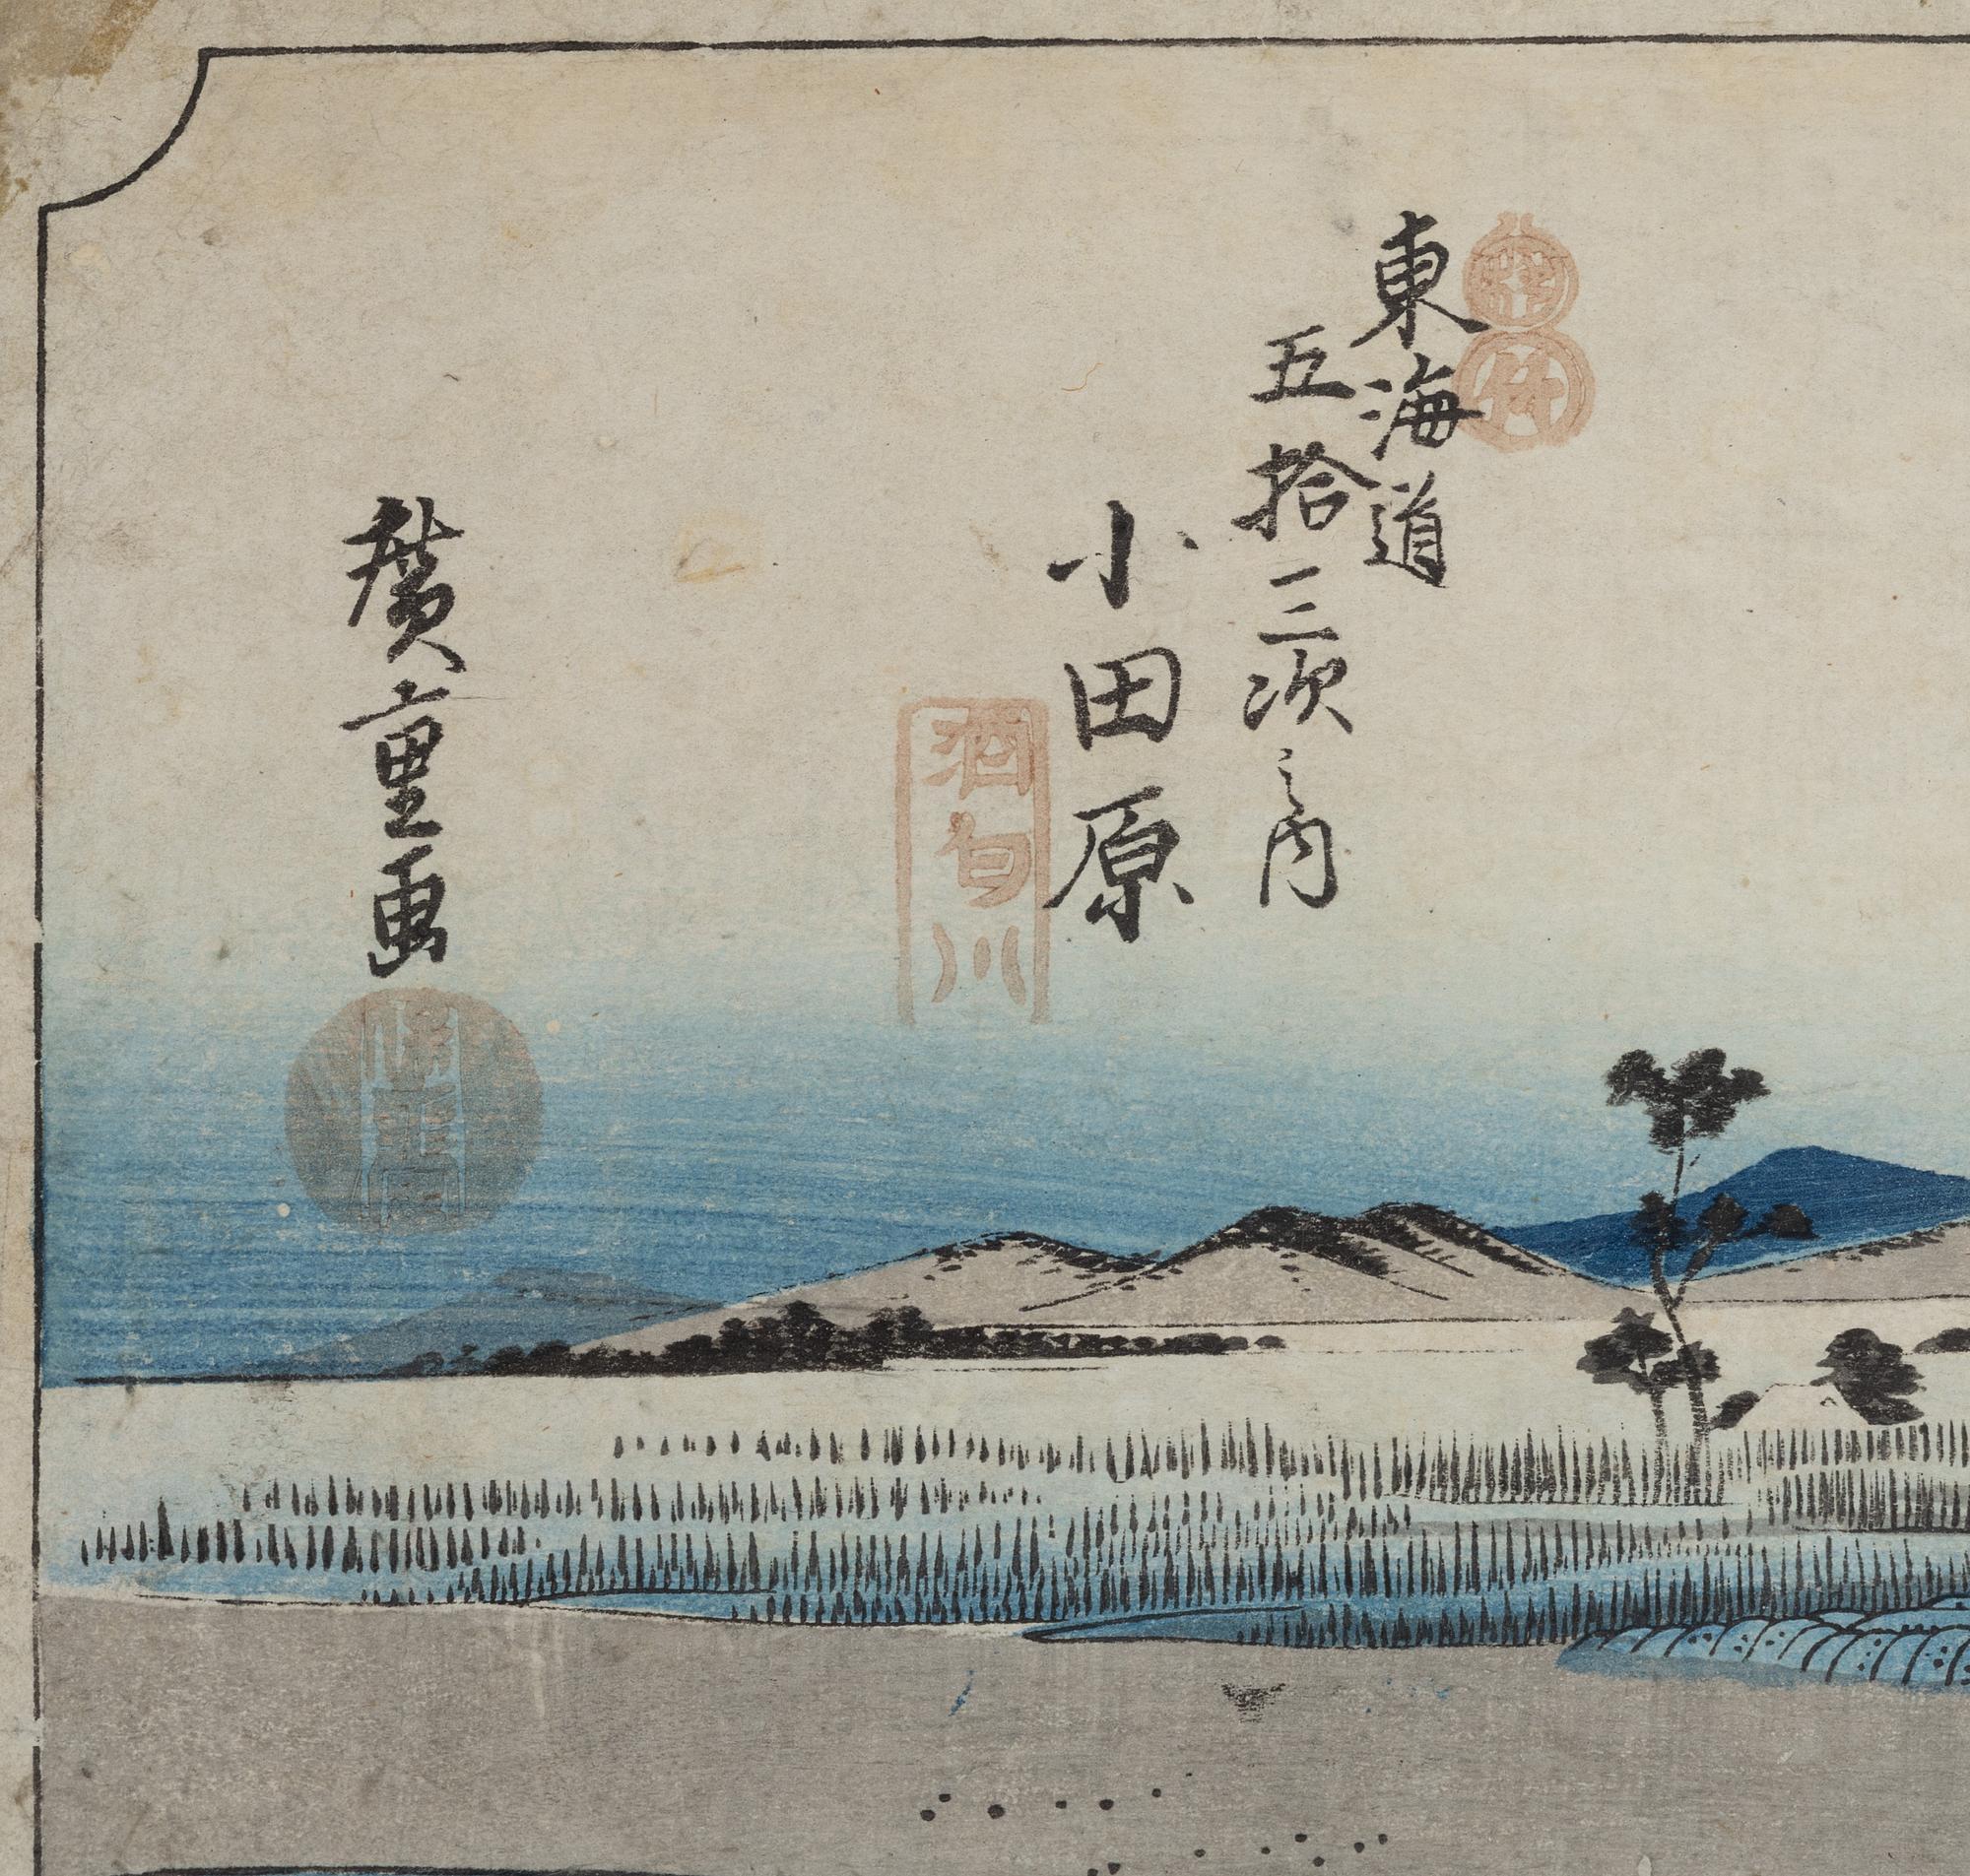 東海道
五拾三次之内
小田原
酒匂川
廣重画
保永堂